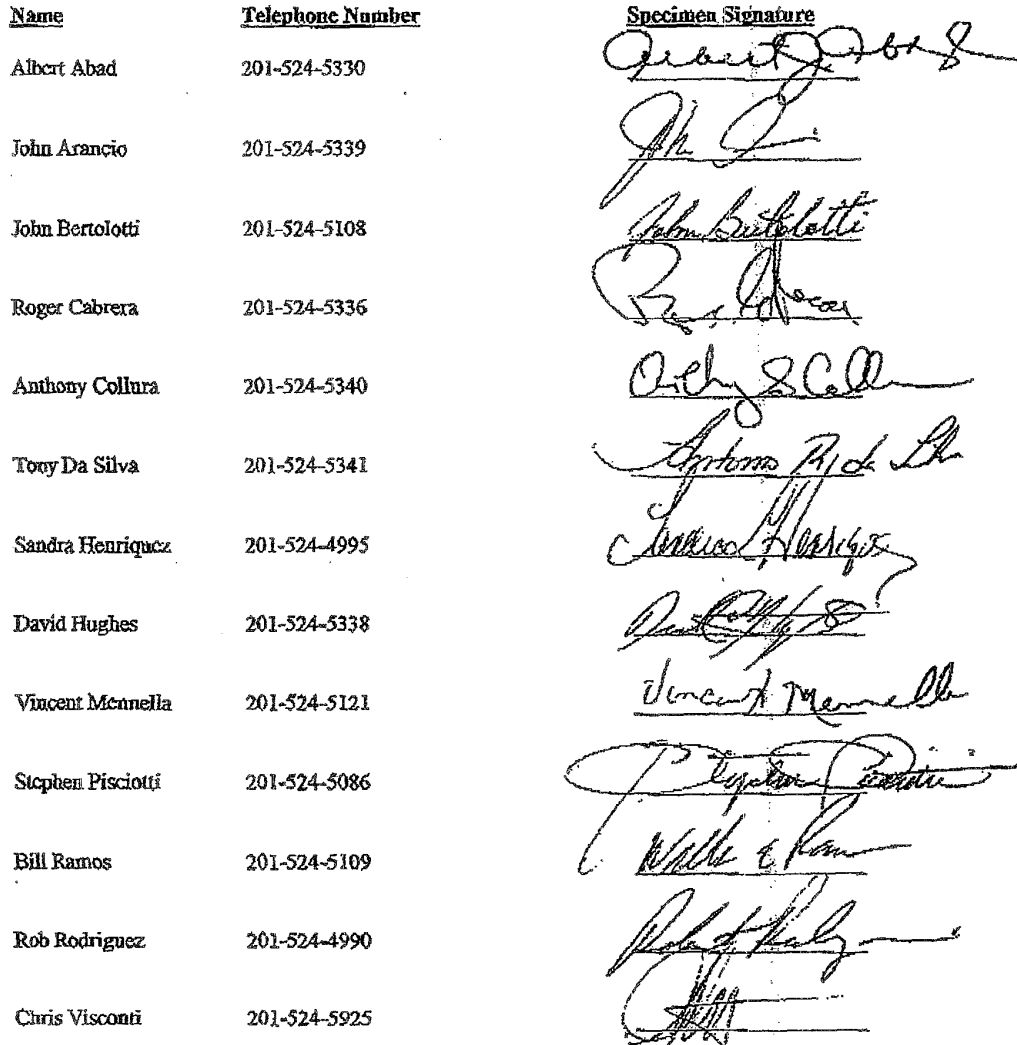 Name Telephone Number Specimen Signature
Albert Abad 201-524-5330
John Arancio 201-524-5339
John Bertolotti 201-524-5108 John Bertolotti
Roger Cabrera 201-524-5336
Anthony Collura 201-524-5340
Tony Da Silva 201-524-5341
Sandra Henriquez 201-524-4995
David Hughes 201-524-5338
Vincent Mennella 201-524-5121 Vincent Mennella
Stephen Pisciotti 201-524-5086
Bill Ramos 201-524-5109
Rob Rodriguez 201-524-4990
Chris Visconti 201-524-5925